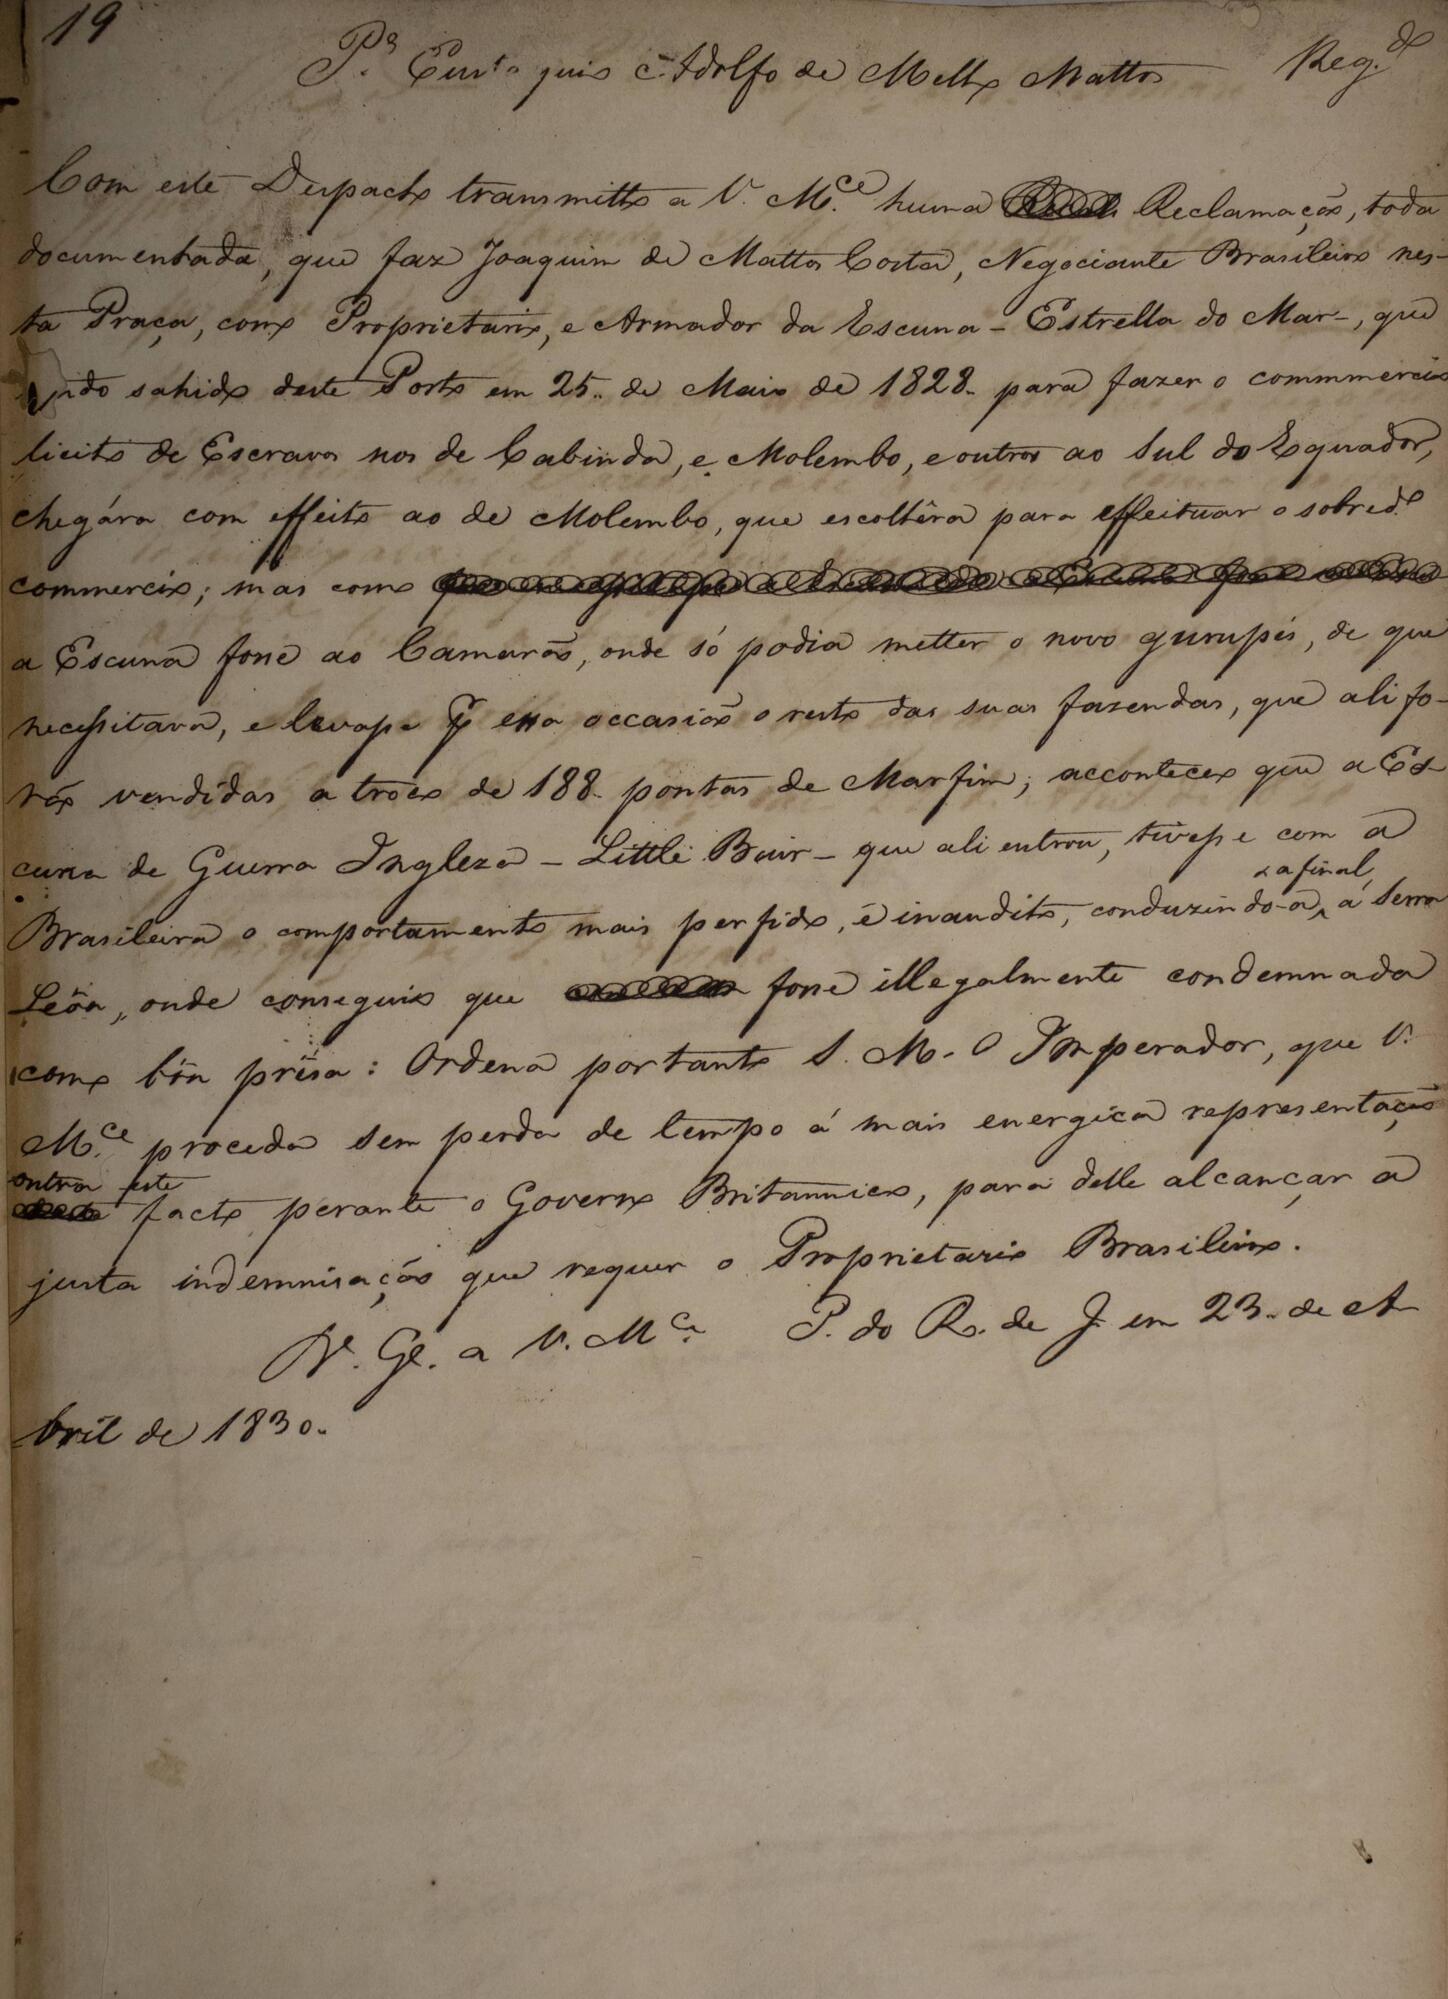 19
P.ª Eust.º quio Adolfo de Mello Mattos Reg.do
Com este Despacho transmitto a V. M.ce huma Reclamação, toda
documentada, que faz Joaquim de Mattos Costa, Negociante Brasileiro nes-
ta Praça, como Proprietario, e Armador da Escuna - Estrella do Mar -, que
indo sahido deste Porto em 25.. de Maio de 1828. para fazer o commmercio
licito de Escravos nos de Cabinda, e Molembo, e outros ao Sul do Equador,
chegára com effeito ao de Molembo, que escolhêra para effeituar o sobred.º
commercio; mas como
a Escuna fosse ao Camarão, onde só podia metter o novo gurupés, de que
necessitava, e levasse p.r essa occasião o resto das suas fazendas, que ali fo-
rão vendidas a troco de 188. pontas de Marfim; acconteceo que a Es-
cuna de Guerra Ingleza - Little Bair - que ali entrou, tivesse com a
Brasileira o comportamento mais perfido, é inaudito, conduzindo-a, afinal, á Serra
Leôa, onde conseguio que fosse illegalmente condemnada
como bôa prêsa: Ordena portanto S. M. O Imperador, que V.
M.ce proceda sem perda de tempo á mais energica representação
contra este facto perante o Governo Britannico, para delle alcançar a
justa indemnisação que requer o Proprietario Brasileiro.
D.s G.e a V. M.ce P. do R. de J. em 23.. de A-
bril de 1830.